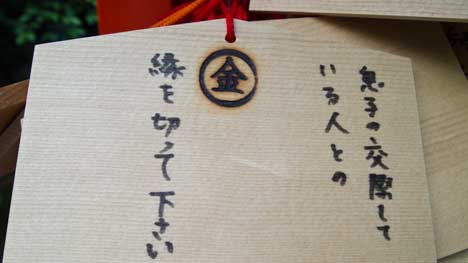 息子の交際して
いる人との
金
縁を切って下さい